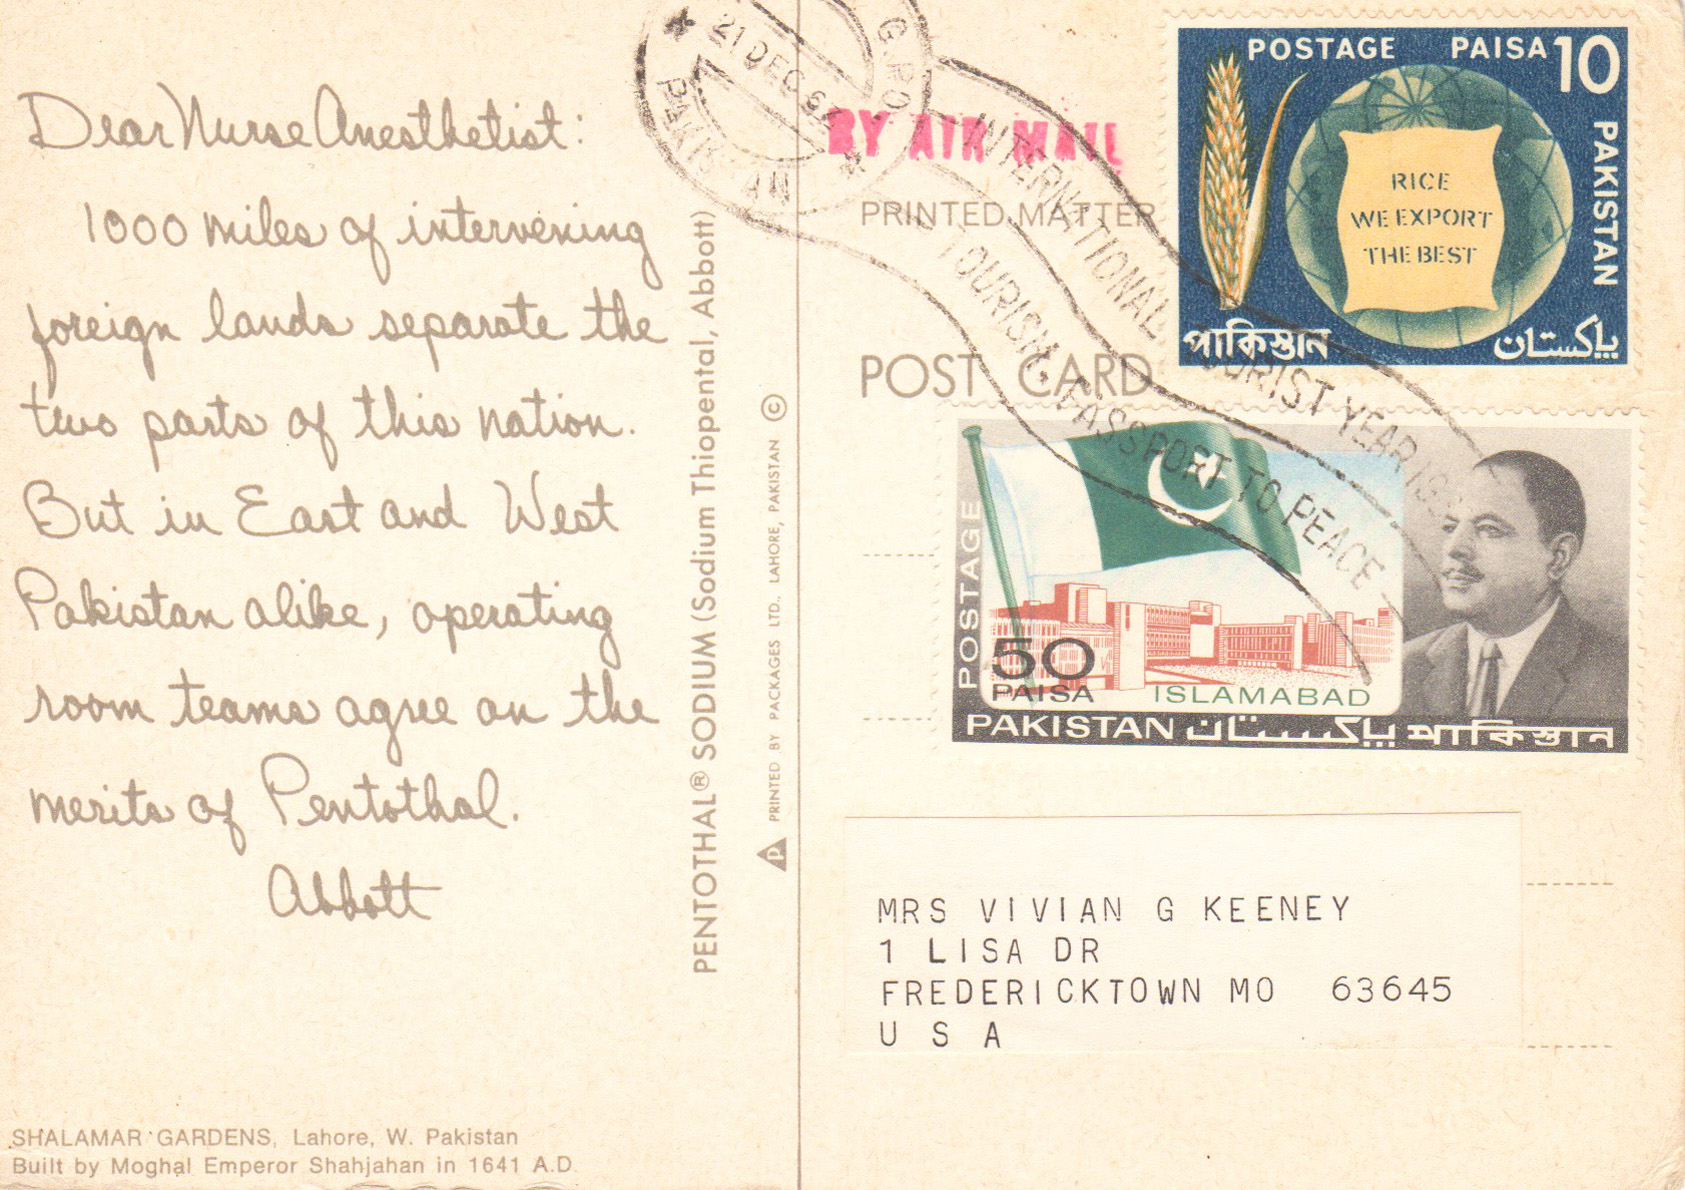 Dear Nurse Anesthetist:
1000 miles of intervening
foreign lands separate the
two parts of this nation.
But in East and West
Pakistan alike, operating
room teams agree on the
merits of Pentothal.
Abbott
SHALAMAR GARDENS, Lahore, W. Pakistan
Built by Moghal Emperor Shahjahan in 1641 A.D.
PENTOTHAL® SODIUM (Sodium Thiopental, Abbott)
PRINTED BY PACKAGES LTD., LAHORE, PAKISTAN ©
G.P.O
21 DEC 67
PAKISTAN
BY AIR MAIL
PRINTED MATTER
POST CARD
INTERNATIONAL TOURIST YEAR
TOURISM, PASSPORT TO PEACE
POSTAGE PAISA 10
PAKISTAN
RICE
WE EXPORT
THE BEST
পাকিস্তান پاکستان
POSTAGE
50
PAISA ISLAMABAD
PAKISTAN پاکستان পাকিস্তান
MRS VIVIAN G KEENEY
1 LISA DR
FREDERICKTOWN MO 63645
U S A